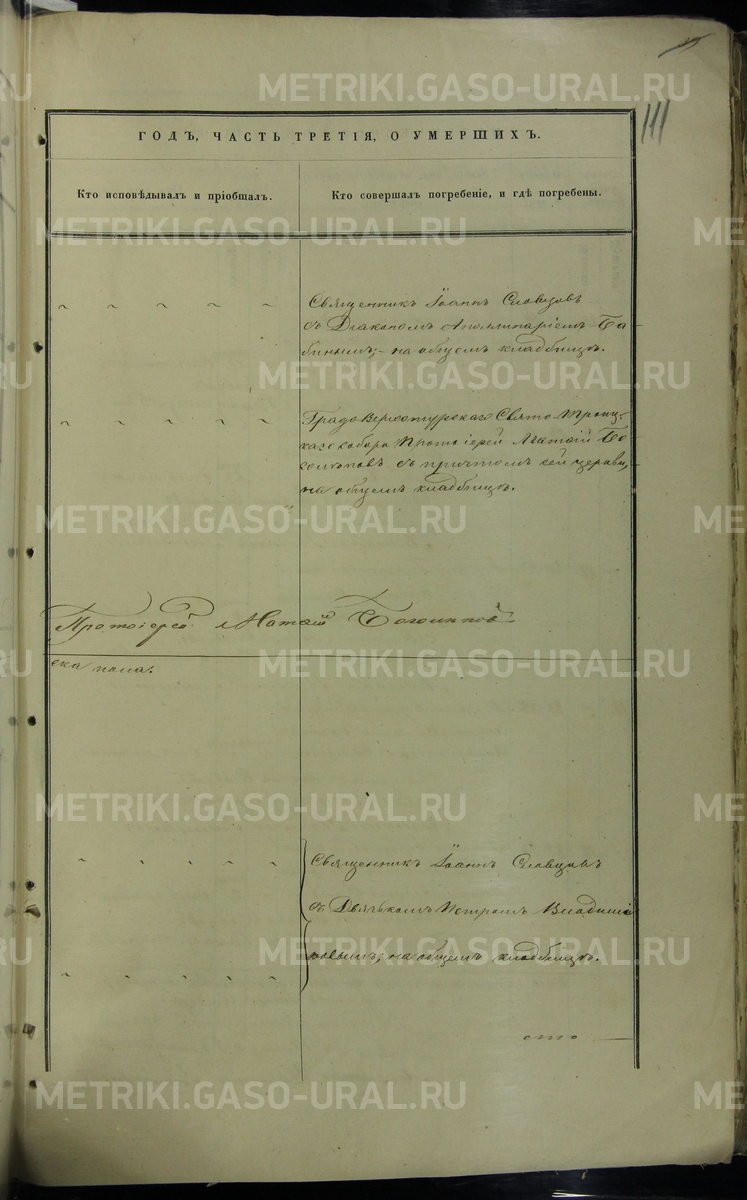 111
ГОДЪ, ЧАСТЬ ТРЕТІЯ, О УМЕРШИХЪ.
Кто исповѣдывалъ и пріобщалъ.
Кто совершалъ погребеніе, и гдѣ погребены.
Священникъ Іоаннъ Словцовъ
съ Діакономъ Аполлинаріемъ Ба-
бинымъ; на общемъ кладбищѣ.
Градо Верхотурскаго Свято-Троиц-
каго собора Протоіерей Матѳій
съ причтомъ сей церкви,
на общемъ кладбищѣ.
Протоіерей Матѳій
ска пола.
Священникъ Іоаннъ Словцовъ
съ Дьячкомъ Петромъ
на общемъ кладбищѣ.
сто
METRIKI.GASO-URAL.RU